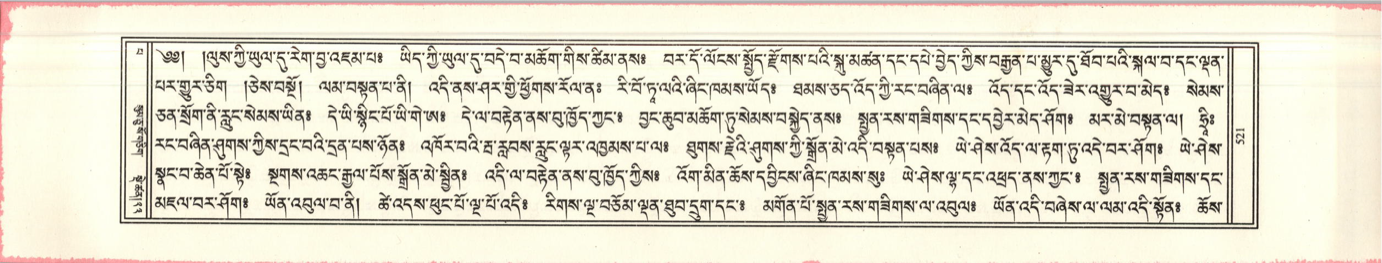 ༄༅། །ལུས་ཀྱི་ཡུལ་དུ་རེག་བྱ་འཇམ་པ༔ ཡིད་ཀྱི་ཡུལ་དུ་བདེ་བ་མཆོག་གིས་ཚིམ་ནས༔ བར་དོ་ལོངས་སྤྱོད་རྫོགས་པའི་སྐུ་མཚན་དང་དཔེ་བྱེད་ཀྱིས་བརྒྱན་པ་མྱུར་དུ་ཐོབ་པའི་སྐལ་བ་དང་ལྡན་
པར་གྱུར་ཅིག །ཅེས་བསྔོ། ལམ་བསྟན་པ་ནི། འདི་ནས་ཤར་གྱི་ཕྱོགས་རོལ་ན༔ རི་བོ་ཏཱ་ལའི་ཞིང་ཁམས་ཡོད༔ ཐམས་ཅད་འོད་ཀྱི་རང་བཞིན་ལ༔ འོད་དང་འོད་ཟེར་འགྱུར་བ་མེད༔ སེམས་
ཅན་སྲོག་ནི་རླུང་སེམས་ཡིན༔ དེ་ཡི་སྙིང་པོ་ཡི་གེ་ཨ༔ དེ་ལ་བརྟེན་ནས་བུ་ཁྱོད་ཀྱང་༔ བྱང་ཆུབ་མཆོག་ཏུ་སེམས་བསྐྱེད་ནས༔ སྤྱན་རས་གཟིགས་དང་དབྱེར་མེད་ཤོག༔ མར་མེ་བསྟན་ལ། ཧྲཱིཿ
རང་བཞིན་ཤུགས་ཀྱིས་དྲང་བའི་དྲན་པས་ཉོན༔ འཁོར་བའི་རྦ་རླབས་རླུང་ལྟར་འཁྱམས་པ་ལ༔ ཐུགས་རྗེའི་ཤུགས་ཀྱི་སྒྲོན་མེ་འདི་བསྟན་པས༔ ཡེ་ཤེས་འོད་ལ་རྟག་ཏུ་འདེ་བར་ཤོག༔ ཡེ་ཤེས་
སྣང་བ་ཆེན་པོ་སྟེ༔ སྔགས་འཆང་རྒྱལ་པོས་སྒྲོན་མེ་སྤྲིན༔ འདི་ལ་བརྟེན་ནས་བུ་ཁྱོད་ཀྱིས༔ འོག་མིན་ཆོས་དབྱིངས་ཞིང་ཁམས་སུ༔ ཡེ་ཤེས་ལྷ་དང་འཕྲད་ནས་ཀྱང་༔ སྤྱན་རས་གཟིགས་དང་
མཇལ་བར་ཤོག༔ ཡོན་འབུལ་བ་ནི། ཚེ་འདས་ཕུང་པོ་ལྔ་པོ་འདི༔ རིགས་ལྔ་བཅོམ་ལྡན་ཐུབ་དྲུག་དང་༔ མགོན་པོ་སྤྱན་རས་གཟིགས་ལ་འབུལ༔ ཡོན་འདི་བཞེས་ལ་ལམ་འདི་སྟོན༔ ཆོས་
521